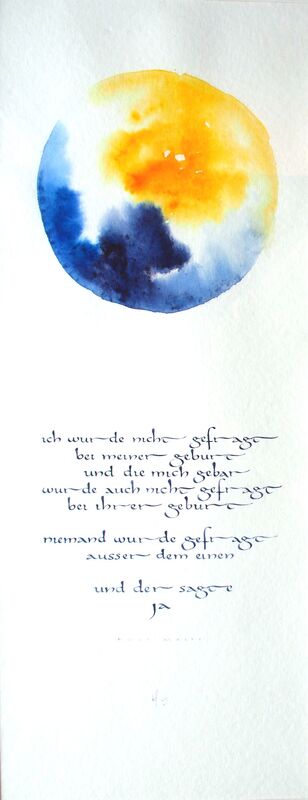 ich wurde nicht gefragt
bei meiner geburt
und die mich gebar
wurde auch nicht gefragt
bei ihrer geburt
niemand wurde gefragt
ausser dem einen
und der sagte
ja
kurt marti